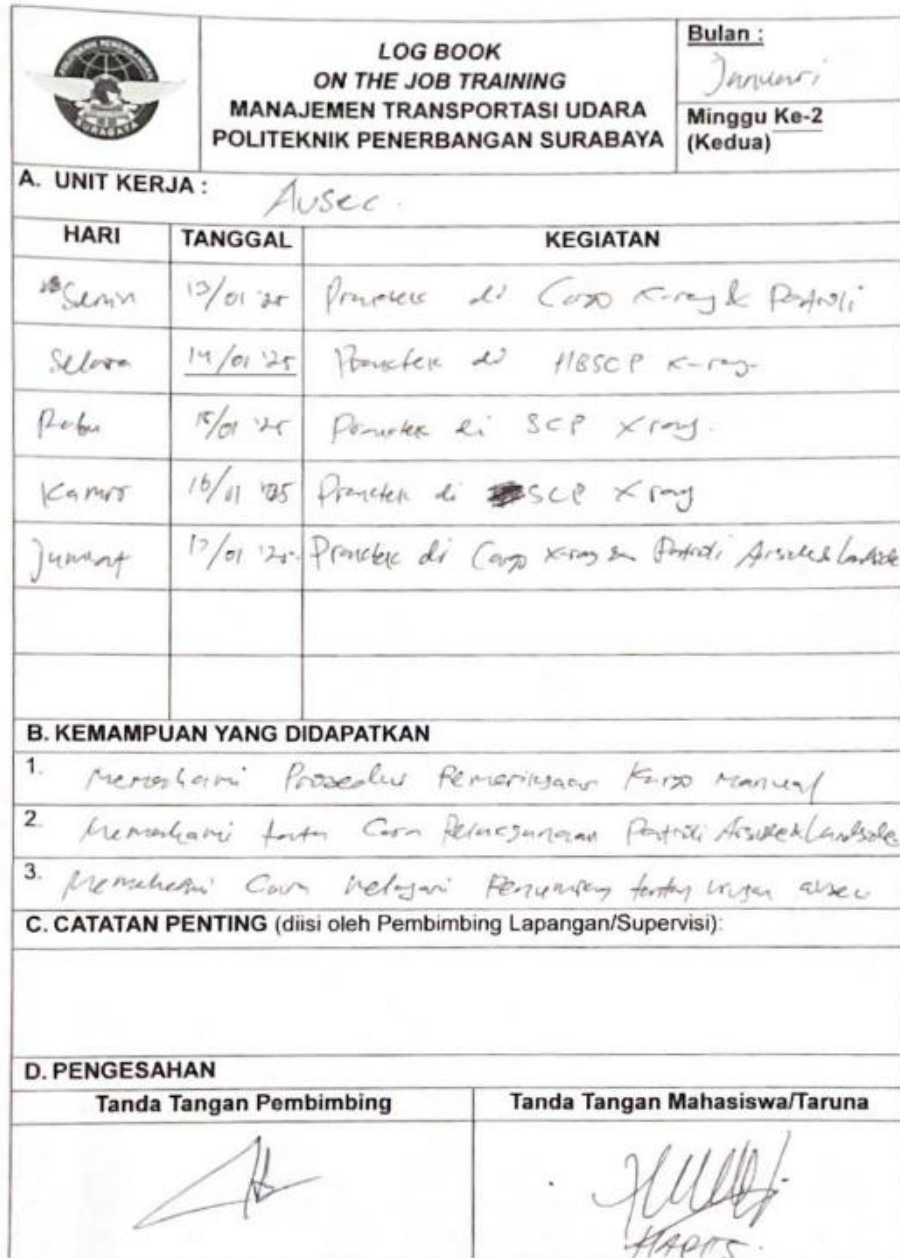 LOG BOOK
ON THE JOB TRAINING
MANAJEMEN TRANSPORTASI UDARA
POLITEKNIK PENERBANGAN SURABAYA
Bulan :
Januari
Minggu Ke-2
(Kedua)
A. UNIT KERJA : Avsec.
HARI TANGGAL KEGIATAN
Senin 13/01 '25 di Cargo X-ray & Patroli
Selasa 14/01 '25 di HBSCP X-ray
Rabu 15/01 '25 di SCP X ray.
Kamis 16/01 '25 di SCP X ray
Jumat 17/01 '25 di Cargo X-ray Patroli Airside & Landside
B. KEMAMPUAN YANG DIDAPATKAN
1. Memahami Prosedur Pemeriksaan Kargo Manual
2. Memahami Cara Patroli Airside & Landside
3. Memahami Cara
C. CATATAN PENTING (diisi oleh Pembimbing Lapangan/Supervisi):
D. PENGESAHAN
Tanda Tangan Pembimbing Tanda Tangan Mahasiswa/Taruna